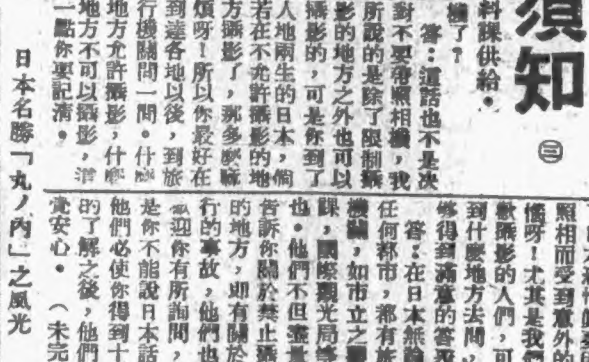 須知 ㊂
料課供給。
機了?
答:這話也不是决
對不要帶照相機,我
所說的是除了限制攝
影的地方之外也可以
攝影的,可是你到了
人地兩生的日本,倘
若在不允許攝影的地
方攝影了,那多麼麻
煩呀!所以你最好在
到達各地以後,到旅
行機關問一問。什麼
地方允許攝影,什麼
地方不可以攝影,這
一點你要記清。
照相而受到意外的
惱呀!尤其是我
歡攝影的人們,可
到什麼地方去問,
够得到滿意的答覆
答:在日本無論
任何都市,都有旅
機關,如市立之
課,國際觀光局等
也。他們不但盡量
告訴你關於禁止攝
的地方,即有關於
行的事故,他們也
歡迎你有所詢問,
是你不能說日本話
他們必使你得到十
的了解之後,他們
覺安心。 (未完
日本名勝「丸ノ內」之風光